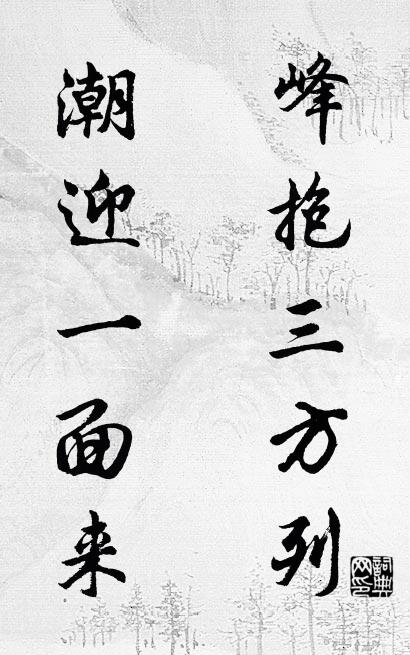 峰抱三方列
潮迎一面来
詞典网印